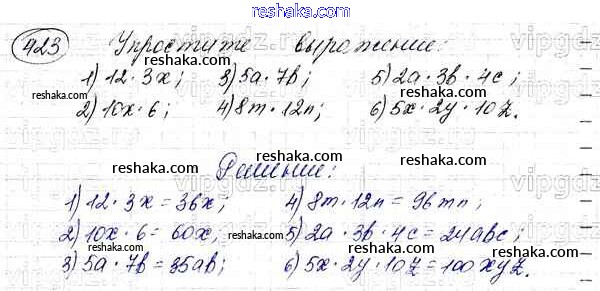 reshaka.com
423 Упростите выражение:
1) 12·3x; 3) 5a·7b; 5) 2a·3b·4c;
reshaka.com reshaka.com reshaka.com
2) 10x·6; 4) 8m·12n; 6) 5x·2y·10z.
reshaka.com
Решение:
reshaka.com reshaka.com
1) 12·3x=36x; 4) 8m·12n=96mn;
2) 10x·6=60x; 5) 2a·3b·4c=24abc;
reshaka.com
3) 5a·7b=35ab; 6) 5x·2y·10z=100xyz.
reshaka.com reshaka.com